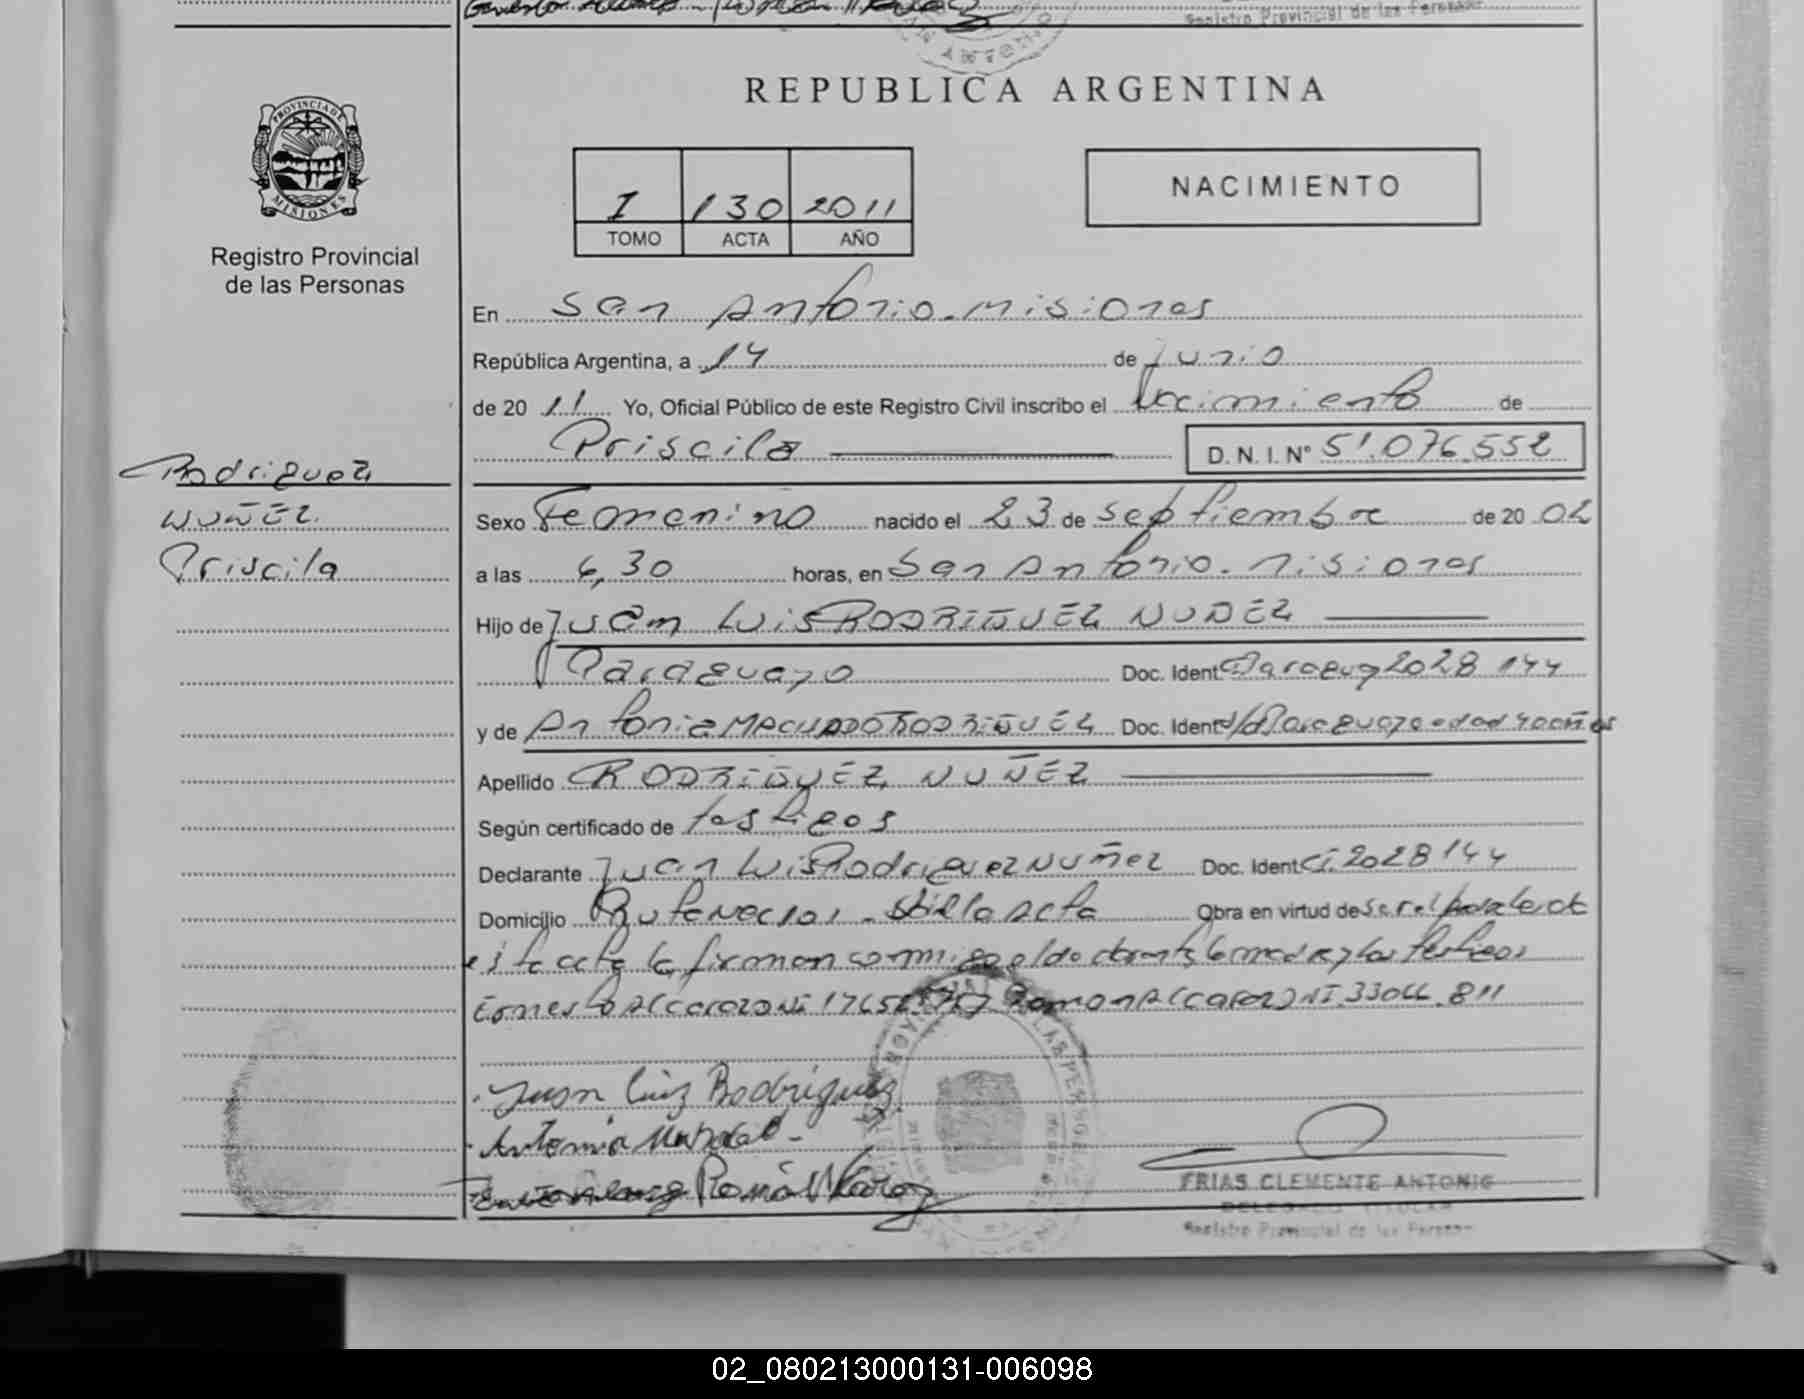 REPUBLICA ARGENTINA
PROVINCIA DE
MISIONES
Registro Provincial
de las Personas
I 130 2011
TOMO ACTA AÑO
NACIMIENTO
En San Antonio - Misiones
República Argentina, a 14 de junio
de 20 11 Yo, Oficial Público de este Registro Civil inscribo el Nacimiento de
Priscila D. N. I. N° 51.076.552
Rodriguez
NUÑEZ
Priscila
Sexo Femenino nacido el 23 de septiembre de 20 02
a las 6,30 horas, en San Antonio - Misiones
Hijo de Juan Luis RODRIGUEZ NUÑEZ
Paraguayo Doc. Ident Paraguay 2028144
y de Antonia MACHADO RODRIGUEZ Doc. Ident Paraguaya edad 40 años
Apellido RODRIGUEZ NUÑEZ
Según certificado de testigos
Declarante Juan Luis Rodriguez Nuñez Doc. Ident Ci. 2028144
Domicilio acta Obra en virtud de ser el padre de
esta acta la firman conmigo el declarante, la madre y los testigos
Ernesto Alcaraz DNI Ramon Alcaraz DNI 33044.811
Juan Luiz Rodriguez
Antonia
Román
FRIAS CLEMENTE ANTONIO
DELEGADO TITULAR
Registro Provincial de las Personas
02_080213000131-006098